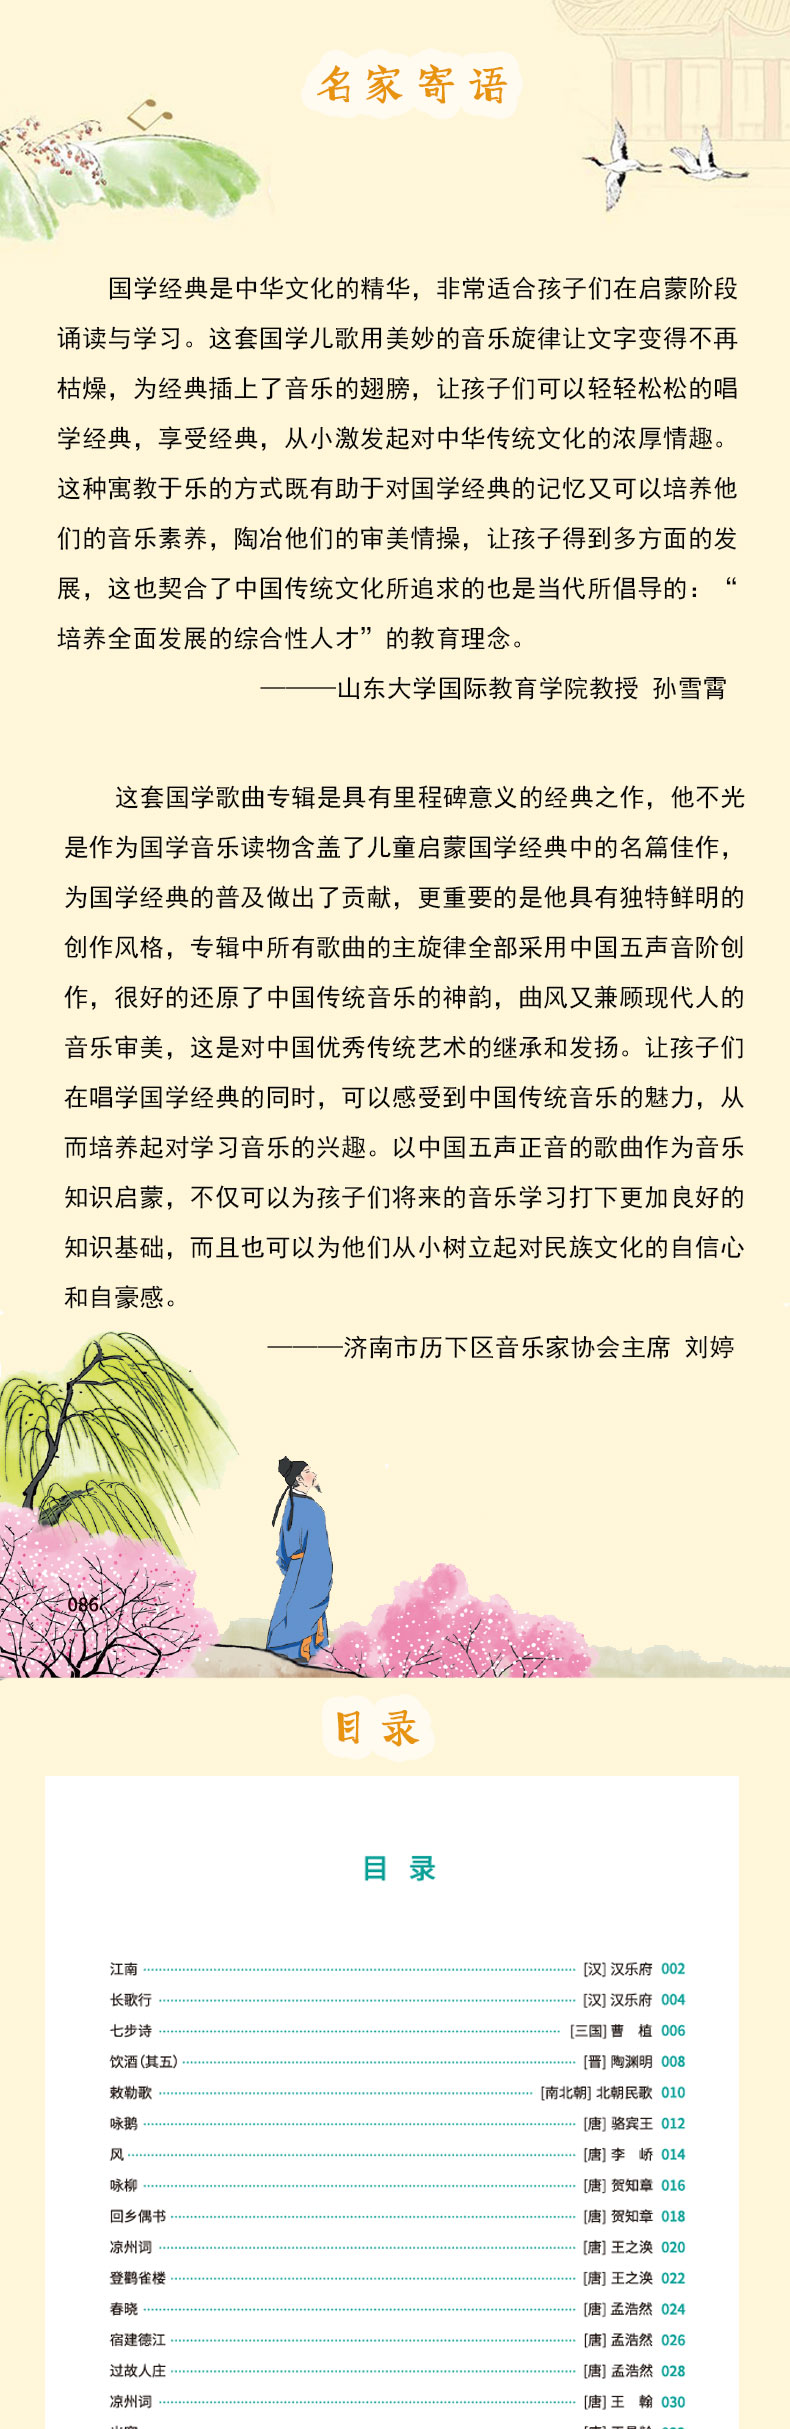 名家寄语
国学经典是中华文化的精华，非常适合孩子们在启蒙阶段
诵读与学习。这套国学儿歌用美妙的音乐旋律让文字变得不再
枯燥，为经典插上了音乐的翅膀，让孩子们可以轻轻松松的唱
学经典，享受经典，从小激发起对中华传统文化的浓厚情趣。
这种寓教于乐的方式既有助于对国学经典的记忆又可以培养他
们的音乐素养，陶冶他们的审美情操，让孩子得到多方面的发
展，这也契合了中国传统文化所追求的也是当代所倡导的：“
培养全面发展的综合性人才”的教育理念。
———山东大学国际教育学院教授 孙雪霄
这套国学歌曲专辑是具有里程碑意义的经典之作，他不光
是作为国学音乐读物含盖了儿童启蒙国学经典中的名篇佳作，
为国学经典的普及做出了贡献，更重要的是他具有独特鲜明的
创作风格，专辑中所有歌曲的主旋律全部采用中国五声音阶创
作，很好的还原了中国传统音乐的神韵，曲风又兼顾现代人的
音乐审美，这是对中国优秀传统艺术的继承和发扬。让孩子们
在唱学国学经典的同时，可以感受到中国传统音乐的魅力，从
而培养起对学习音乐的兴趣。以中国五声正音的歌曲作为音乐
知识启蒙，不仅可以为孩子们将来的音乐学习打下更加良好的
知识基础，而且也可以为他们从小树立起对民族文化的自信心
和自豪感。
———济南市历下区音乐家协会主席 刘婷
086
目录
目 录
江南 [汉] 汉乐府 002
长歌行 [汉] 汉乐府 004
七步诗 [三国] 曹 植 006
饮酒（其五） [晋] 陶渊明 008
敕勒歌 [南北朝] 北朝民歌 010
咏鹅 [唐] 骆宾王 012
风 [唐] 李 峤 014
咏柳 [唐] 贺知章 016
回乡偶书 [唐] 贺知章 018
凉州词 [唐] 王之涣 020
登鹳雀楼 [唐] 王之涣 022
春晓 [唐] 孟浩然 024
宿建德江 [唐] 孟浩然 026
过故人庄 [唐] 孟浩然 028
凉州词 [唐] 王 翰 030